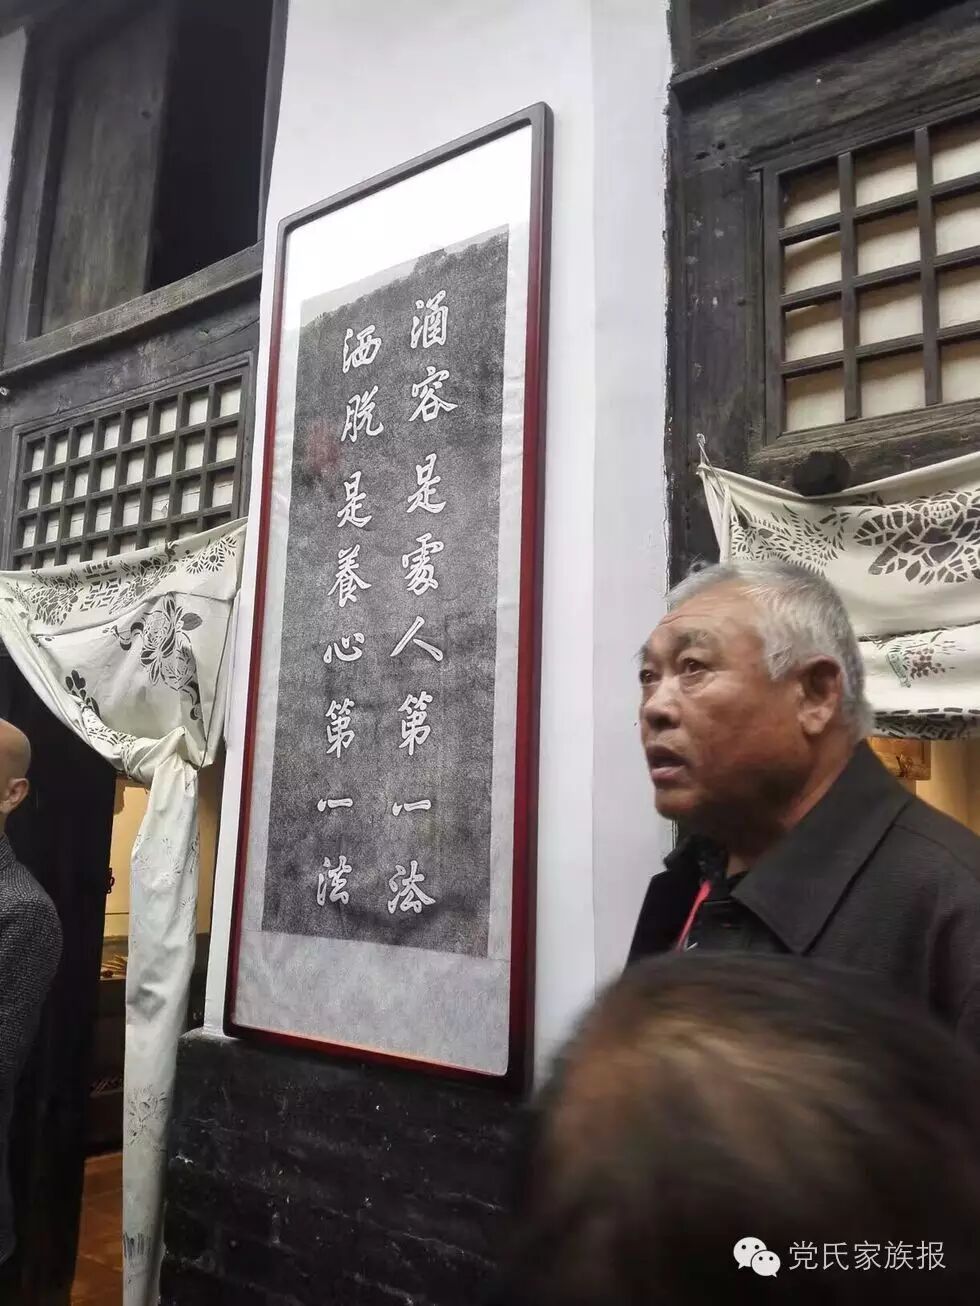 涵容是處人第一法
洒脱是養心第一法
党氏家族报